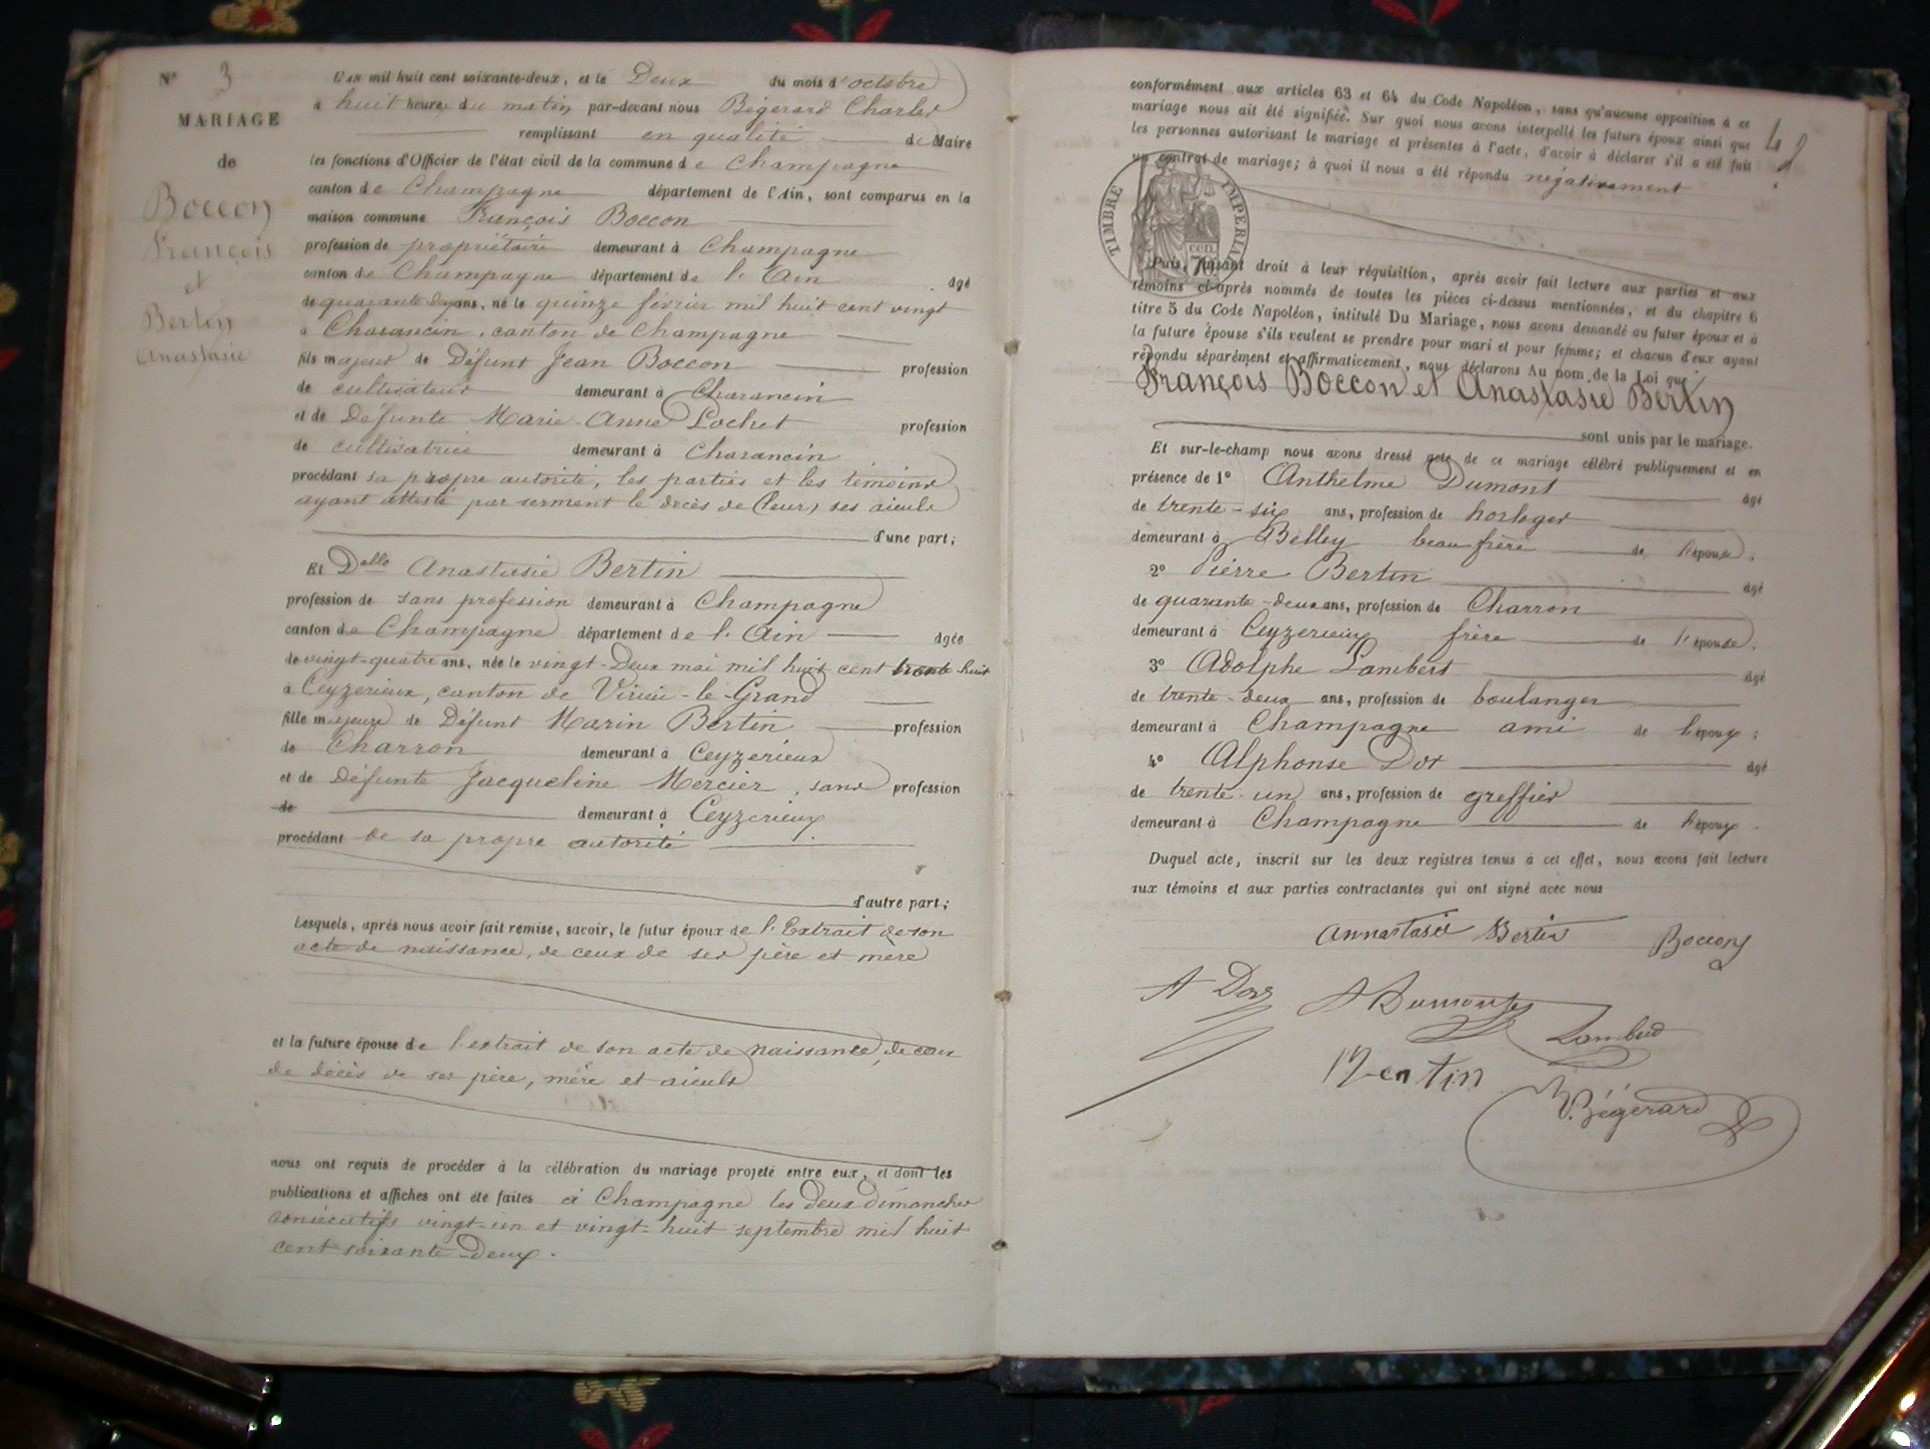 N° 3
MARIAGE
de
Boccon
François
et
Bertin
Anastasie
L'an mil huit cent soixante-deux, et le Deux du mois d'octobre
à huit heures du matin, par-devant nous Bégerard Charles
remplissant en qualité de Maire
les fonctions d'Officier de l'état civil de la commune de Champagne
canton de Champagne département de l'Ain, sont comparus en la
maison commune François Boccon
profession de propriétaire demeurant à Champagne
canton de Champagne département de l'Ain âgé
de quarante deux ans, né le quinze février mil huit cent vingt
à Charancin, canton de Champagne
fils majeur de Défunt Jean Boccon profession
de cultivateur demeurant à Charancin
et de Défunte Marie-Anne Lochet profession
de cultivatrice demeurant à Charancin
procédant sa propre autorité, les parties et les témoins
ayant attesté par serment le décès de (leur) ses aieuls
d'une part;
Et Delle Anastasie Bertin
profession de sans profession demeurant à Champagne
canton de Champagne département de l'Ain âgée
de vingt-quatre ans, née le vingt-Deux mai mil huit cent trente huit
à Ceyzerieux, canton de Virieu-le-Grand
fille majeure de Défunt Marin Bertin profession
de Charron demeurant à Ceyzerieux
et de Défunte Jacqueline Mercier, sans profession
de demeurant à Ceyzerieux
procédant de sa propre autorité
d'autre part;
Lesquels, après nous avoir fait remise, savoir, le futur époux de l'Extrait de son
acte de naissance, de ceux de ses père et mère
et la future épouse de l'extrait de son acte de naissance, de ceux
de décès de ses père, mère et aieuls
nous ont requis de procéder à la célébration du mariage projeté entre eux, et dont les
publications et affiches ont été faites à Champagne les Deux Dimanches
consécutifs vingt-un et vingt-huit septembre mil huit
cent soixante-Deux.
conformément aux articles 63 et 64 du Code Napoléon, sans qu'aucune opposition à ce
mariage nous ait été signifiée. Sur quoi nous avons interpellé les futurs époux ainsi que
les personnes autorisant le mariage et présentes à l'acte, d'avoir à déclarer s'il a été fait
un contrat de mariage; à quoi il nous a été répondu négativement
TIMBRE IMPERIAL
70 cen.
Puis, faisant droit à leur réquisition, après avoir fait lecture aux parties et aux
témoins ci-après nommés de toutes les pièces ci-dessus mentionnées, et du chapitre 6
titre 5 du Code Napoléon, intitulé Du Mariage, nous avons demandé au futur époux et à
la future épouse s'ils veulent se prendre pour mari et pour femme; et chacun d'eux ayant
répondu séparément et affirmativement, nous déclarons Au nom de la Loi que
François Boccon et Anastasie Bertin
sont unis par le mariage.
Et sur-le-champ nous avons dressé acte de ce mariage célébré publiquement et en
présence de 1° Anthelme Dumont âgé
de trente-six ans, profession de horloger
demeurant à Belley beau frère de l'épouse.
2° Pierre Bertin âgé
de quarante-deux ans, profession de Charron
demeurant à Ceyzerieux frère de l'épouse.
3° Adolphe Lambert âgé
de trente-deux ans, profession de boulanger
demeurant à Champagne ami de l'époux;
4° Alphonse Dor âgé
de trente-un ans, profession de greffier
demeurant à Champagne de l'époux.
Duquel acte, inscrit sur les deux registres tenus à cet effet, nous avons fait lecture
aux témoins et aux parties contractantes qui ont signé avec nous
Annastasie Bertin Boccon
A Dor A Dumont
Lambert
Bertin
Bégerard